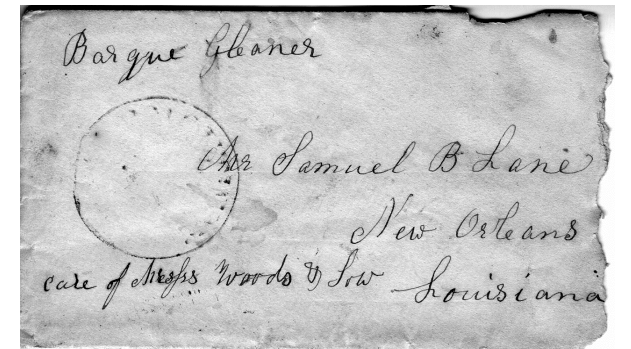 Barque Gleaner
Mr Samuel B Lane
New Orleans
care of Messrs Woods & Low Louisiana